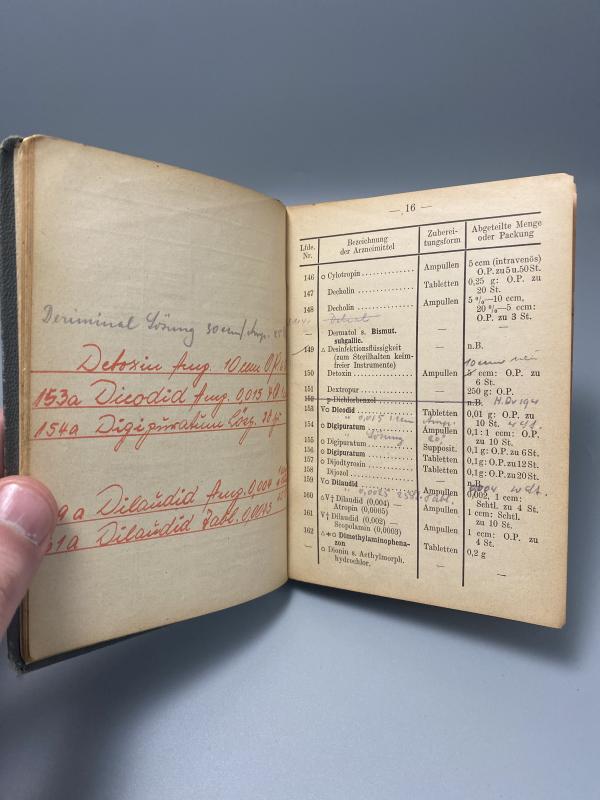 Deriminal Lösung 30 ccm/Amp.
Detoxin Amp. 10 ccm
153a Dicodid Amp. 0,015
154a Digipuratum Lösg.
a Dilaudid Amp. 0,004
61a Dilaudid Tabl. 0,0025
— 16 —
Lfde. Nr. Bezeichnung der Arzneimittel Zuberei-tungsform Abgeteilte Menge oder Packung
146 ○ Cylotropin Ampullen 5 ccm (intravenös) O.P. zu 5 u. 50 St.
147 Decholin Tabletten 0,25 g: O.P. zu 20 St.
148 Decholin Ampullen 5 %—10 ccm, 20 %—5 ccm: O.P. zu 3 St.
— Dermatol s. Bismut. subgallic. —
149 △ Desinfektionsflüssigkeit (zum Sterilhalten keimfreier Instrumente) — n.B.
10 ccm
150 Detoxin Ampullen 5 ccm: O.P. zu 6 St.
151 Dextropur — 250 g: O.P.
152 p-Dichlorbenzol — n.B. H.Dv 194
153 V○ Dicodid Tabletten 0,01 g: O.P. zu 10 St.
" 0,015 1 ccm Amp.
154 ○ Digipuratum Ampullen 0,1 : 1 ccm: O.P. zu 10 St.
" Lösung
155 ○ Digipuratum Supposit. 0,1 g: O.P. zu 6 St.
156 ○ Digipuratum Tabletten 0,1 g: O.P. zu 12 St.
157 ○ Dijodtyrosin Tabletten 0,1 g: O.P. zu 20 St.
158 Dijozol — n.B.
159 V○ Dilaudid Ampullen 0,002, 1 ccm: Schtl. zu 4 St.
" 0,0025
160 ○V‡ Dilaudid (0,004) — Atropin (0,0005) Ampullen 1 ccm: Schtl. zu 10 St.
161 ○V‡ Dilaudid (0,002) — Scopolamin (0,0003) Ampullen 1 ccm: O.P. zu 4 St.
162 △+○ Dimethylaminophenazon Tabletten 0,2 g
○ Dionin s. Aethylmorph. hydrochlor. — —